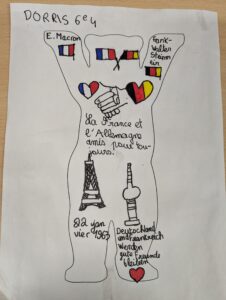 DORRIS 6e4
E. Macron
Frank-
Walter
Steinm
eier
La France et
l'Allemagne
amis pour tou-
jours.
22 jan
vier 1963
Deutschland
und Frankreich
werden
gute Freunde
bleiben